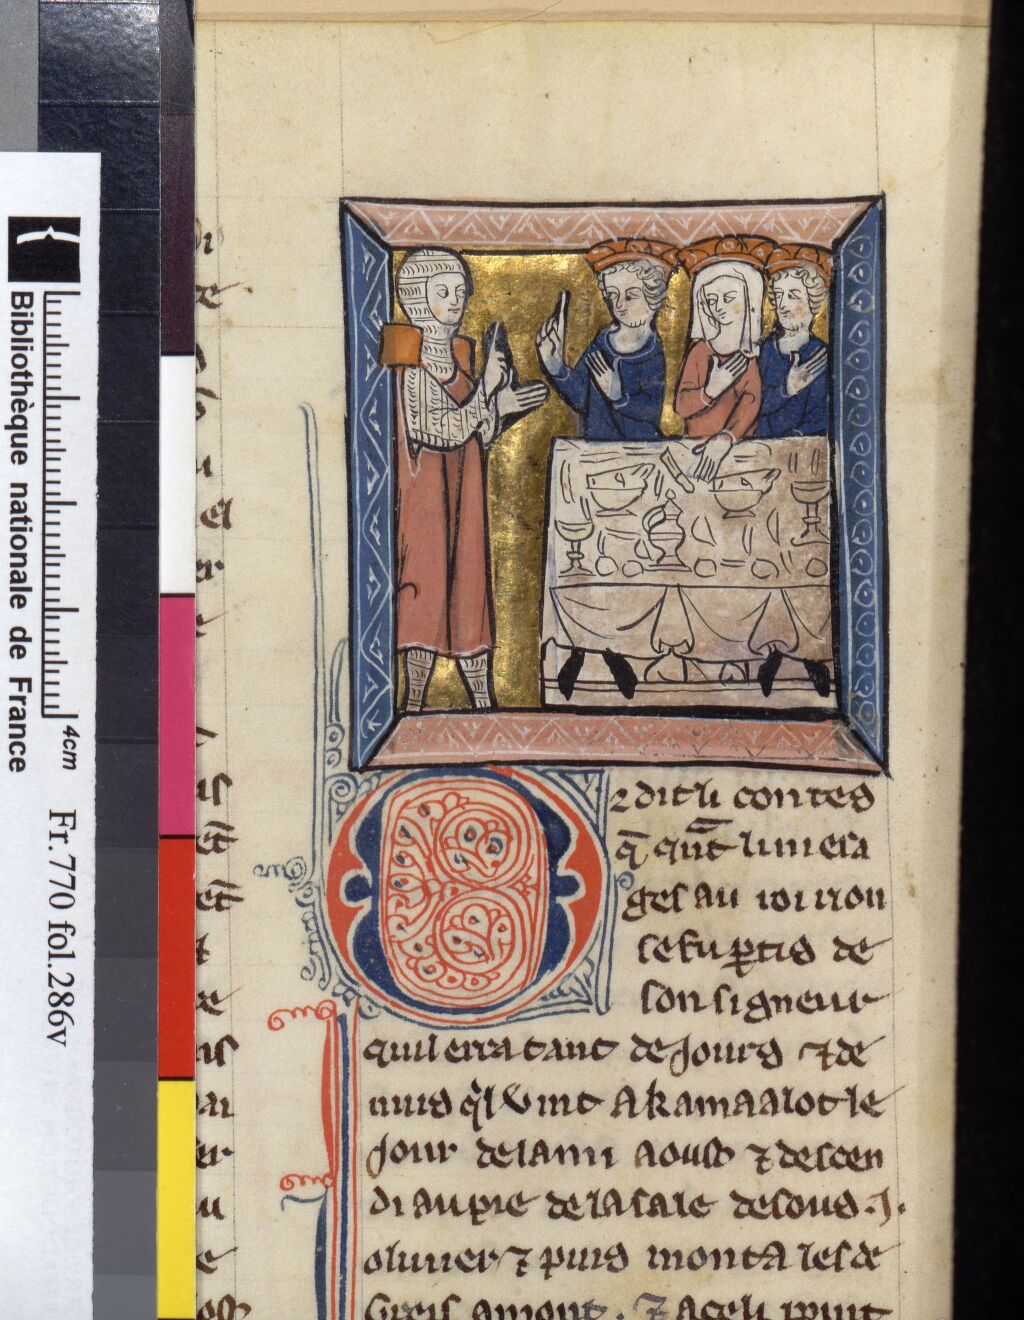 Bibliothèque nationale de France
4cm
Fr. 770 fol. 286v
Or dit li contes
q̄ qn̄t li mera
ges au roi rion
se fu ꝑtis de
son signeur
quil erra tant de jours ⁊ de
nuis ql vint a kamaalot le
jour de la mi aoust ⁊ descen
di au pie de la sale desous .j.
oliuier ⁊ puis monta les de
greis amont. ⁊ a celi point